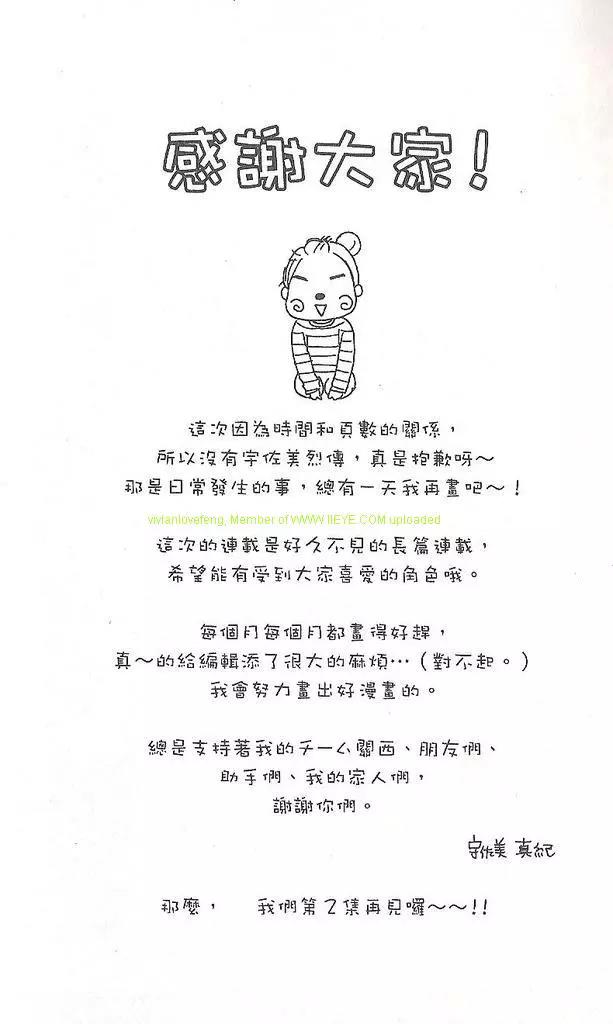 感謝大家！
這次因為時間和頁數的關係，
所以沒有宇佐美烈傳，真是抱歉呀～
那是日常發生的事，總有一天我再畫吧～！
vivianlovefeng, Member of WWW.IIEYE.COM uploaded
這次的連載是好久不見的長篇連載，
希望能有受到大家喜愛的角色哦。
每個月每個月都畫得好趕，
真～的給編輯添了很大的麻煩…（對不起。）
我會努力畫出好漫畫的。
總是支持著我的チーム關西、朋友們、
助手們、我的家人們，
謝謝你們。
宇佐美 真紀
那麼，　我們第2集再見囉～～!!